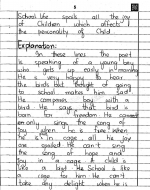 5
School life spoils all the joy
of Children which affects
the personality of Child
Explanation:
In these lines the poet
is speaking of a young boy
who gets up early in morning
He is very happy to hear
the birds but thought of going
to school makes him sad
He compares boy with a
bird He says that bird is
born for freedom He cannot
only sings the song of
Joy when he is free when
he is in cage all his joy
are spoiled He can't sing
the song of hope and
Joy in a cage A child's
life is a like School is like
a cage for him He can't
take any delight when he is